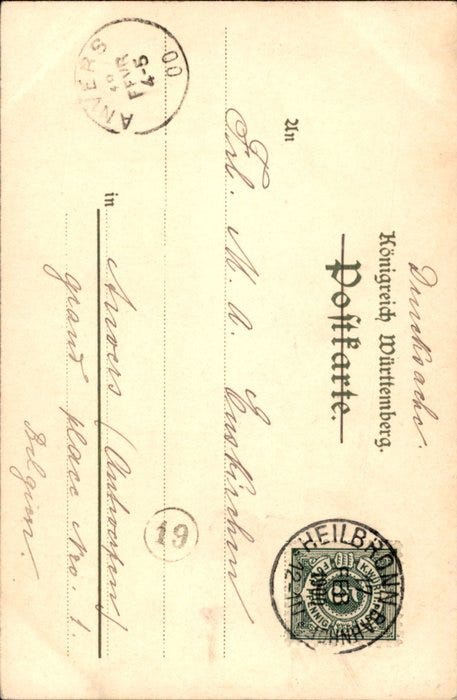 Drucksache.
Königreich Württemberg.
Postkarte.
An
Frl. M. A. Euskirchen
in Anvers (Antwerpen)
grand place Nro. 1.
Belgien.
ANVERS
FEVR
4-5
00
19
HEILBRONN
FEB
5
PFENNIG